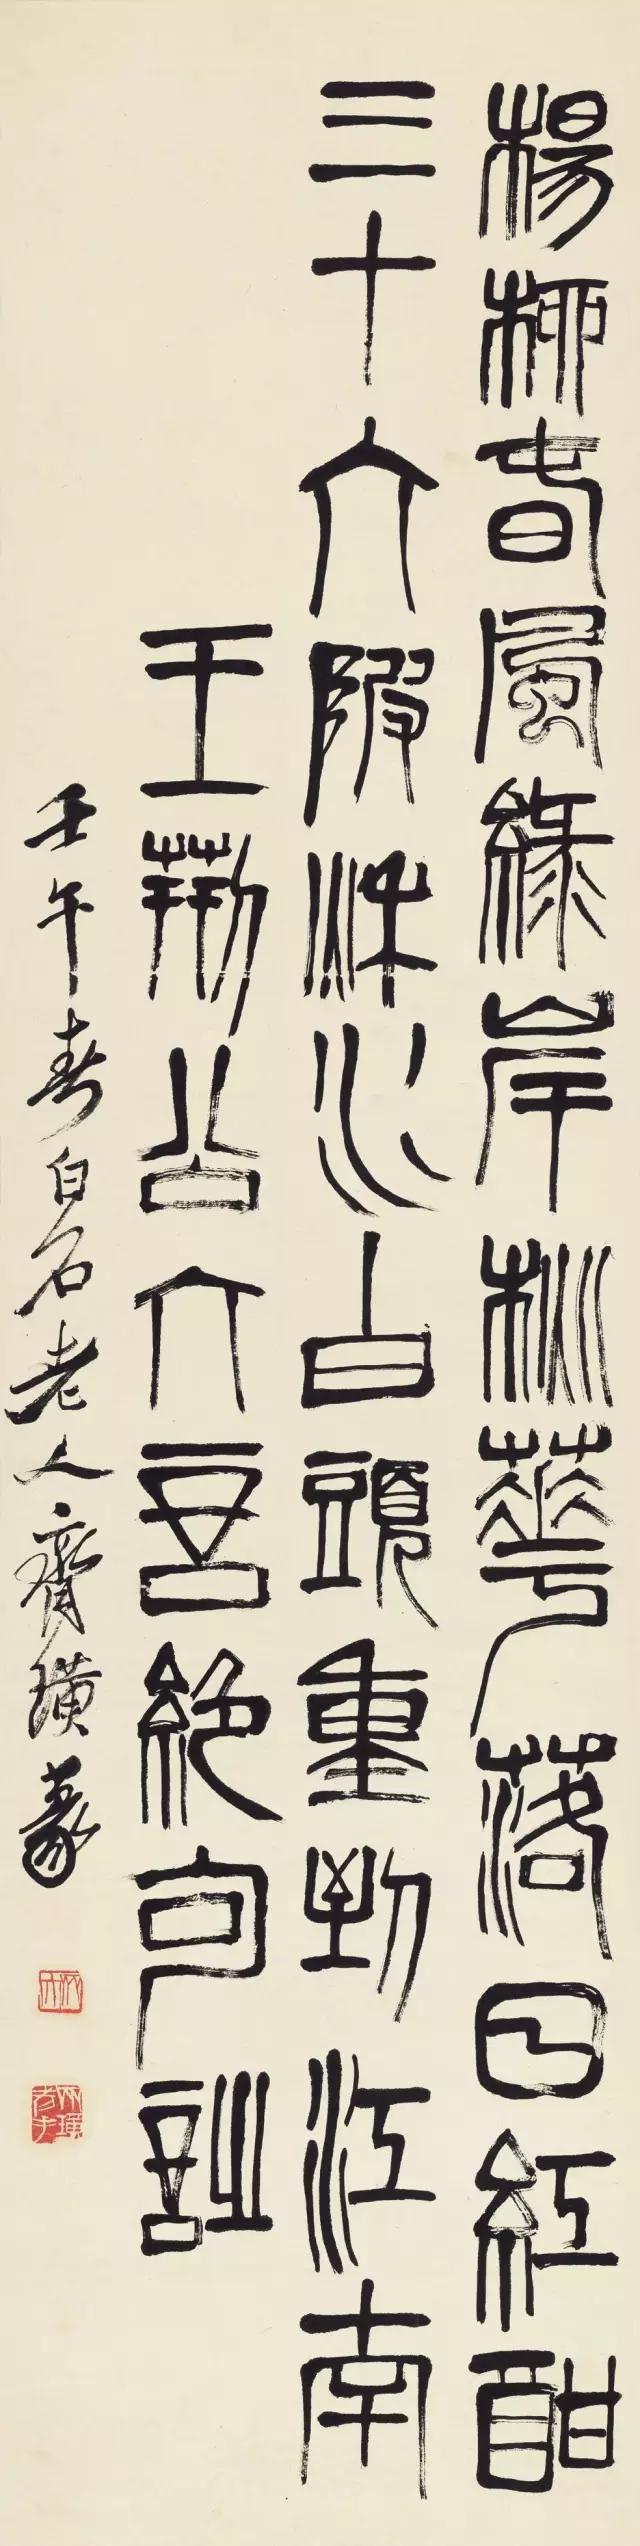 楊柳春風綠岸桃華落日紅酣
三十六陂秋水白頭重到江南
王荊公六言絕句詩
壬午春白石老人齊璜篆